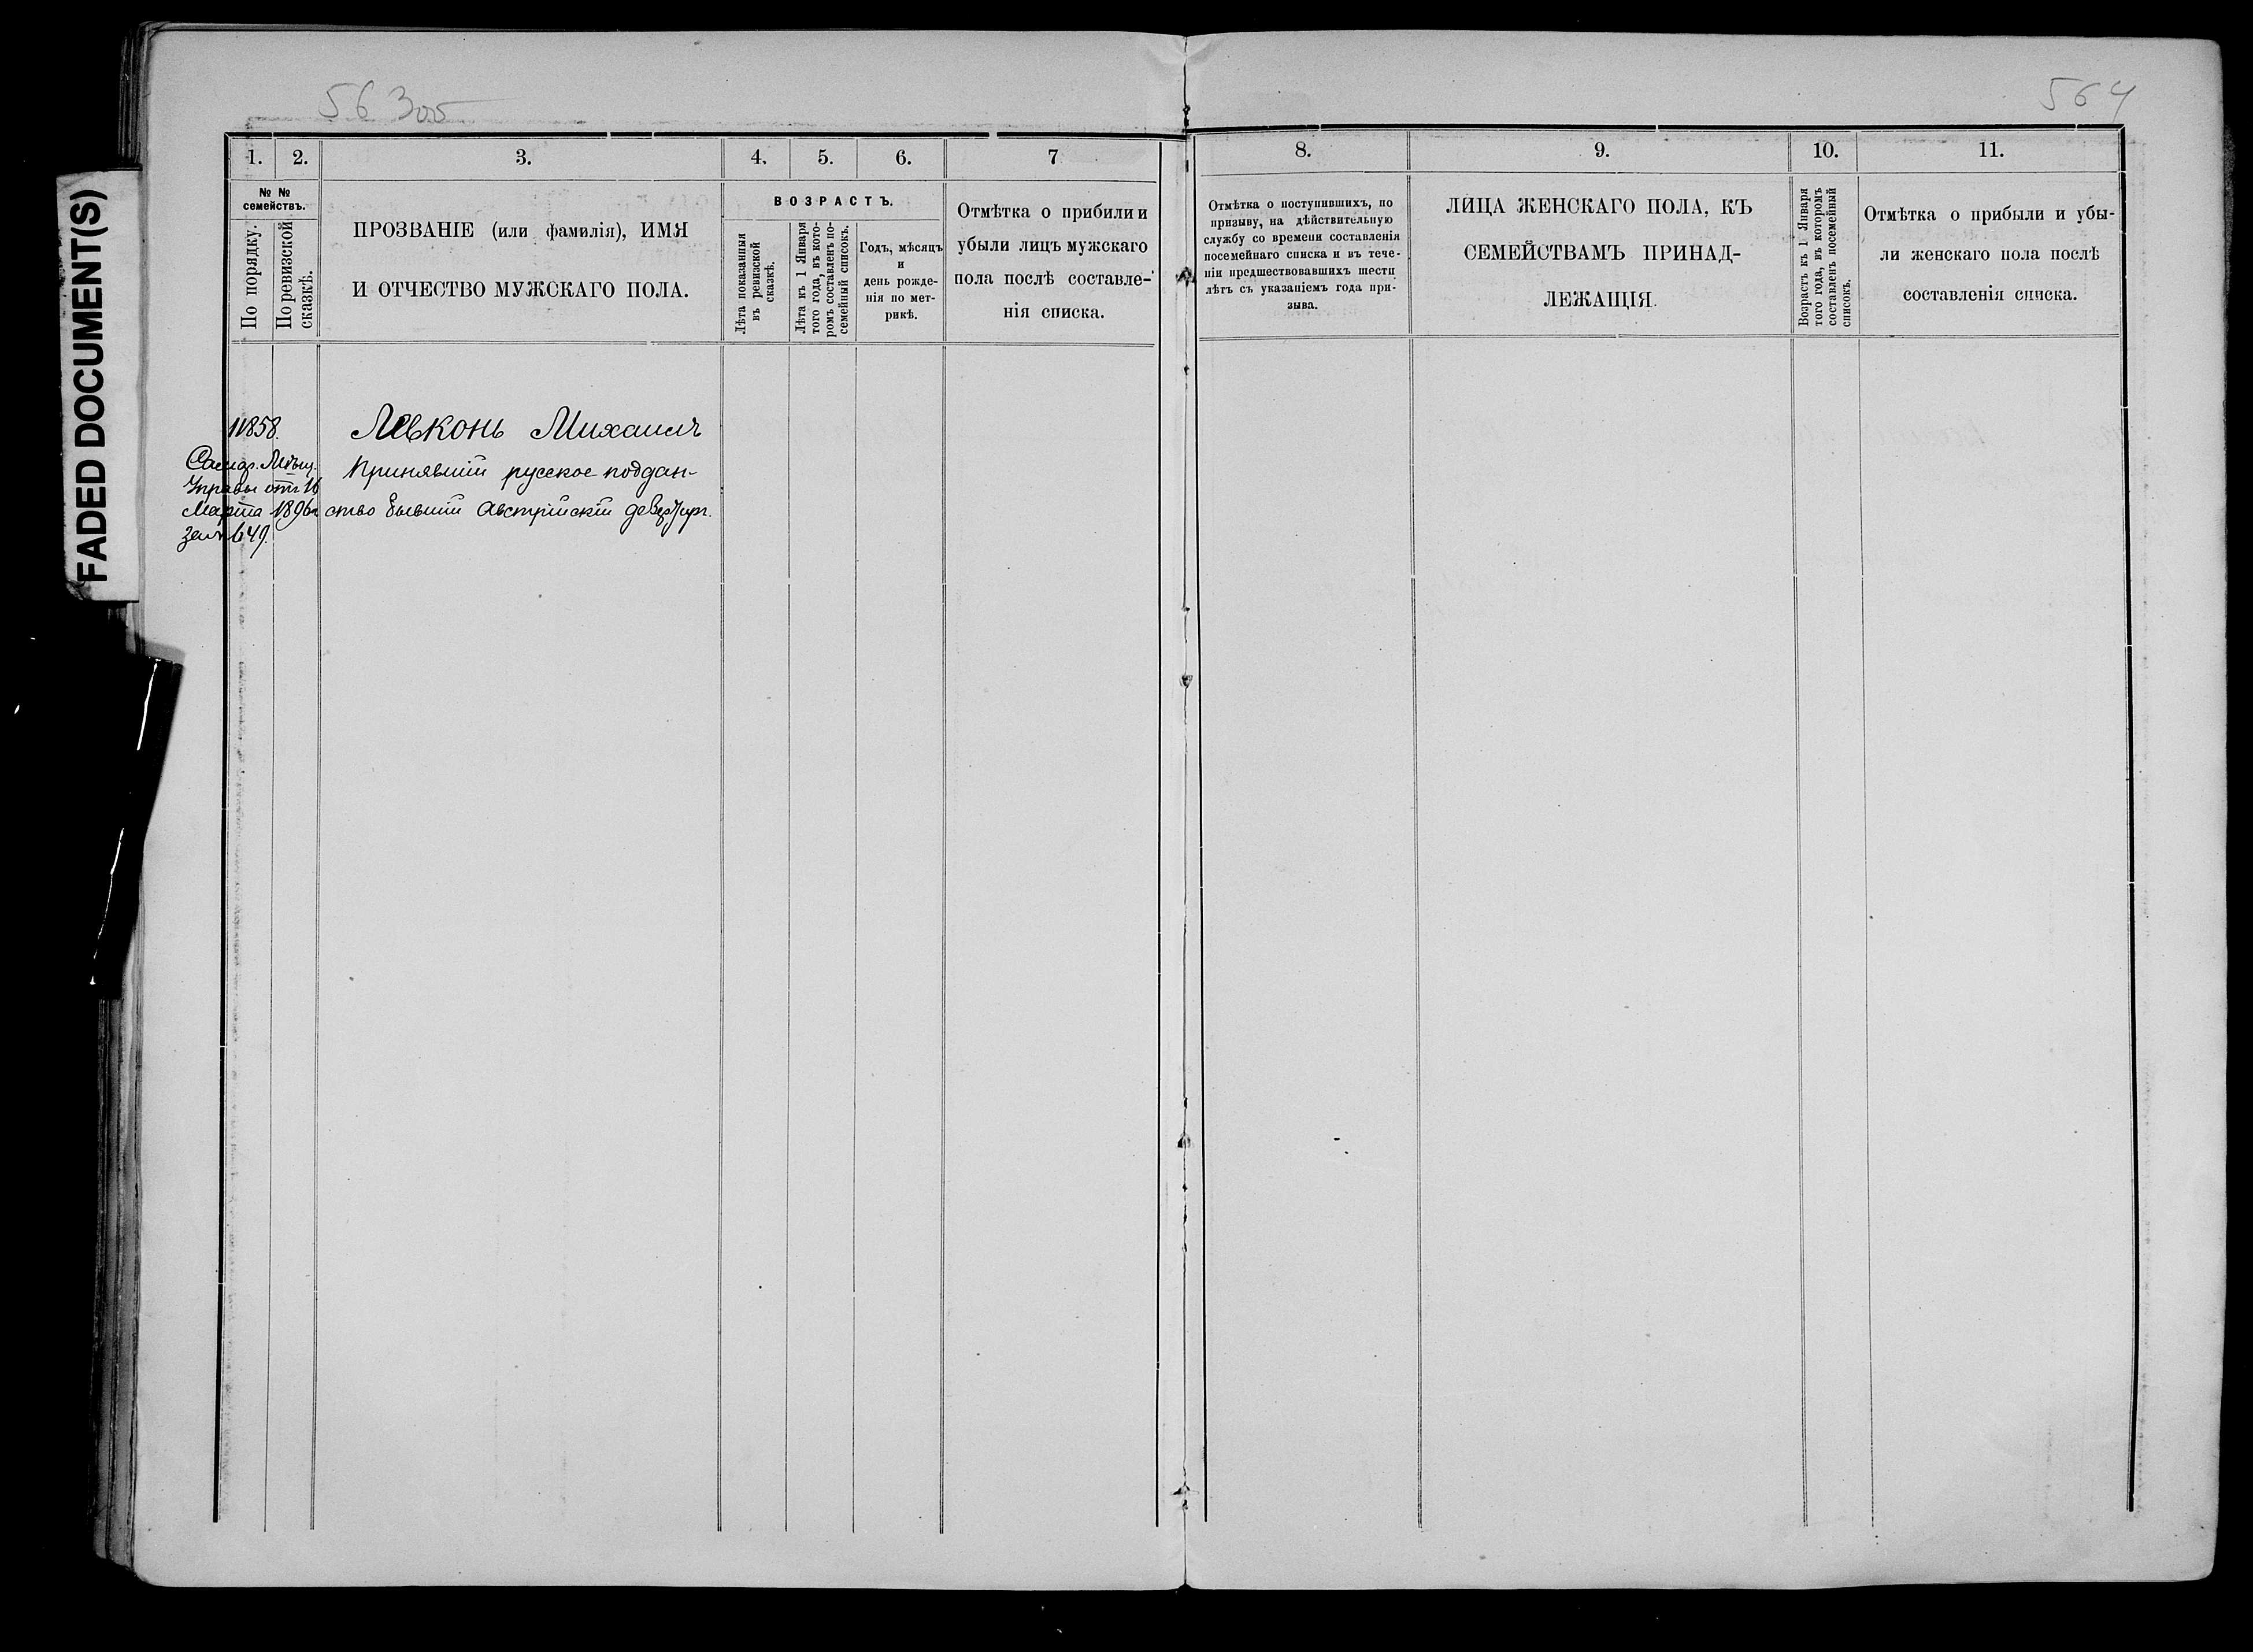 FADED DOCUMENT(S)
56 305
564
1.
2.
3.
4.
5.
6.
7
№ №
семействъ.
По порядку.
По ревизской
сказкѣ.
ПРОЗВАНІЕ (или фамилія), ИМЯ
И ОТЧЕСТВО МУЖСКАГО ПОЛА.
ВОЗРАСТЪ.
Лѣта показанныя
въ ревизской
сказкѣ.
Лѣта къ 1 Января
того года, въ кото-
ромъ составленъ по-
семейный списокъ.
Годъ, мѣсяцъ
и
день рожде-
нія по мет-
рикѣ.
Отмѣтка о прибили и
убыли лицъ мужскаго
пола послѣ составле-
нія списка.
8.
9.
10.
11.
Отмѣтка о поступившихъ, по
призыву, на дѣйствительную
службу со времени составленія
посемейнаго списка и въ тече-
ніи предшествовавшихъ шести
лѣтъ съ указаніемъ года при-
зыва.
ЛИЦА ЖЕНСКАГО ПОЛА, КЪ
СЕМЕЙСТВАМЪ ПРИНАД-
ЛЕЖАЩІЯ.
Возрастъ къ 1 Января
того года, въ которомъ
составленъ посемейный
списокъ.
Отмѣтка о прибыли и убы-
ли женскаго пола послѣ
составленія списка.
11858.
Самар. Мѣщ.
Управы отъ 16
Марта 1896г
за № 649.
Левконь Михаилъ
Принявшій русское поддан-
ство бывшій Австрійскій дезертиръ.